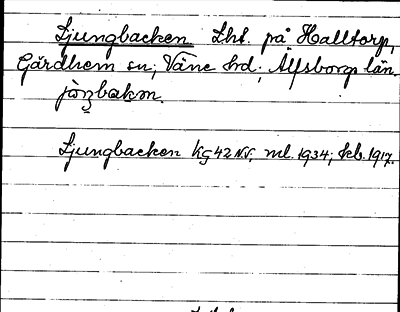 Ljungbacken Lht. på Halltorp,
Gärdhem sn, Väne hd, Älfsborgs län.
jòŋbakɷn.
Ljungbacken kg 42 N.V. ml. 1934; kb. 1917.